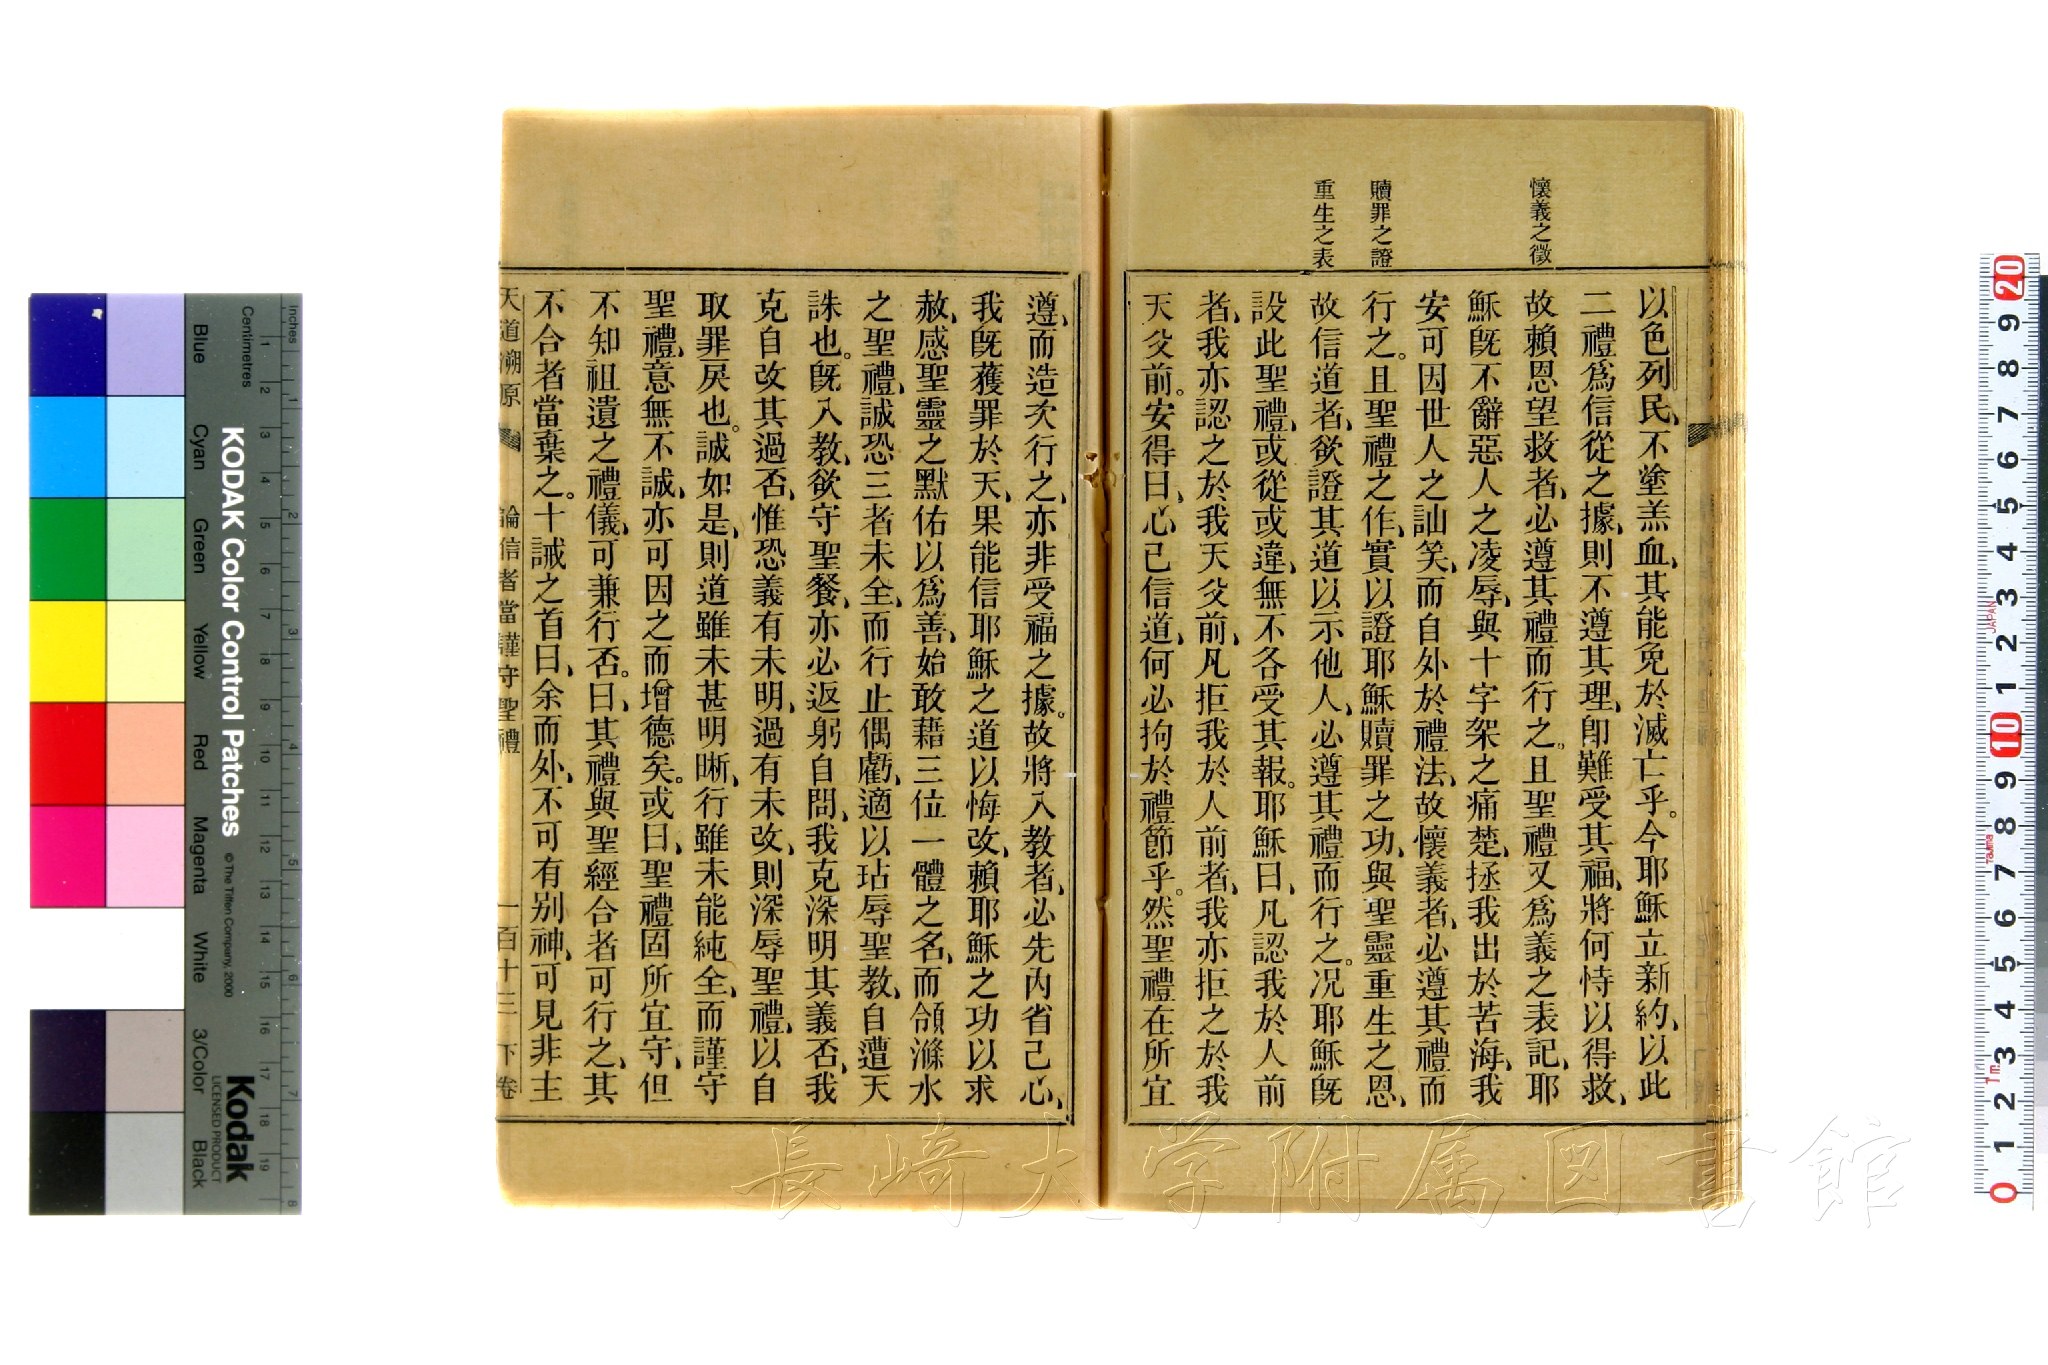 懷義之徵
贖罪之證
重生之表
以色列民、不塗羔血、其能免於滅亡乎。今耶穌立新約、以此
二禮爲信從之據、則不遵其理、卽難受其福、將何恃以得救、
故賴恩望救者、必遵其禮而行之。且聖禮又爲義之表記、耶
穌旣不辭惡人之凌辱、與十字架之痛楚、拯我出於苦海、我
安可因世人之訕笑、而自外於禮法、故懷義者、必遵其禮而
行之。且聖禮之作、實以證耶穌贖罪之功、與聖靈重生之恩、
故信道者、欲證其道以示他人、必遵其禮而行之。况耶穌旣
設此聖禮、或從或違、無不各受其報。耶穌曰、凡認我於人前
者、我亦認之於我天父前、凡拒我於人前者、我亦拒之於我
天父前。安得曰、心已信道、何必拘於禮節乎。然聖禮在所宜
遵、而造次行之、亦非受福之據。故將入教者、必先內省己心、
我旣獲罪於天、果能信耶穌之道以悔改、賴耶穌之功以求
赦、感聖靈之默佑以爲善、始敢藉三位一體之名、而領滌水
之聖禮、誠恐三者未全、而行止偶虧、適以玷辱聖教、自遭天
誅也。旣入教、欲守聖餐、亦必返躬自問、我克深明其義否、我
克自改其過否、惟恐義有未明、過有未改、則深辱聖禮、以自
取罪戾也。誠如是、則道雖未甚明晰、行雖未能純全、而謹守
聖禮、意無不誠、亦可因之而增德矣。或曰、聖禮固所宜守、但
不知祖遺之禮儀、可兼行否。曰、其禮與聖經合者可行之、其
不合者當棄之。十誡之首曰、余而外、不可有别神、可見非主
天道溯原 論信者當謹守聖禮 一百十三 下卷
長崎大学附属図書館
KODAK Color Control Patches
© The Tiffen Company, 2000
Kodak
LICENSED PRODUCT
Inches
Centimetres
Blue Cyan Green Yellow Red Magenta White 3/Color Black
JAPAN
Tajima
1m